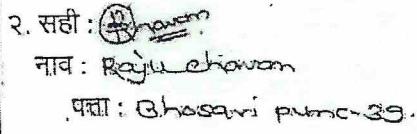 २. सही : Chavan
नाव : Raju chavan
पत्ता : Bhosari pune-39